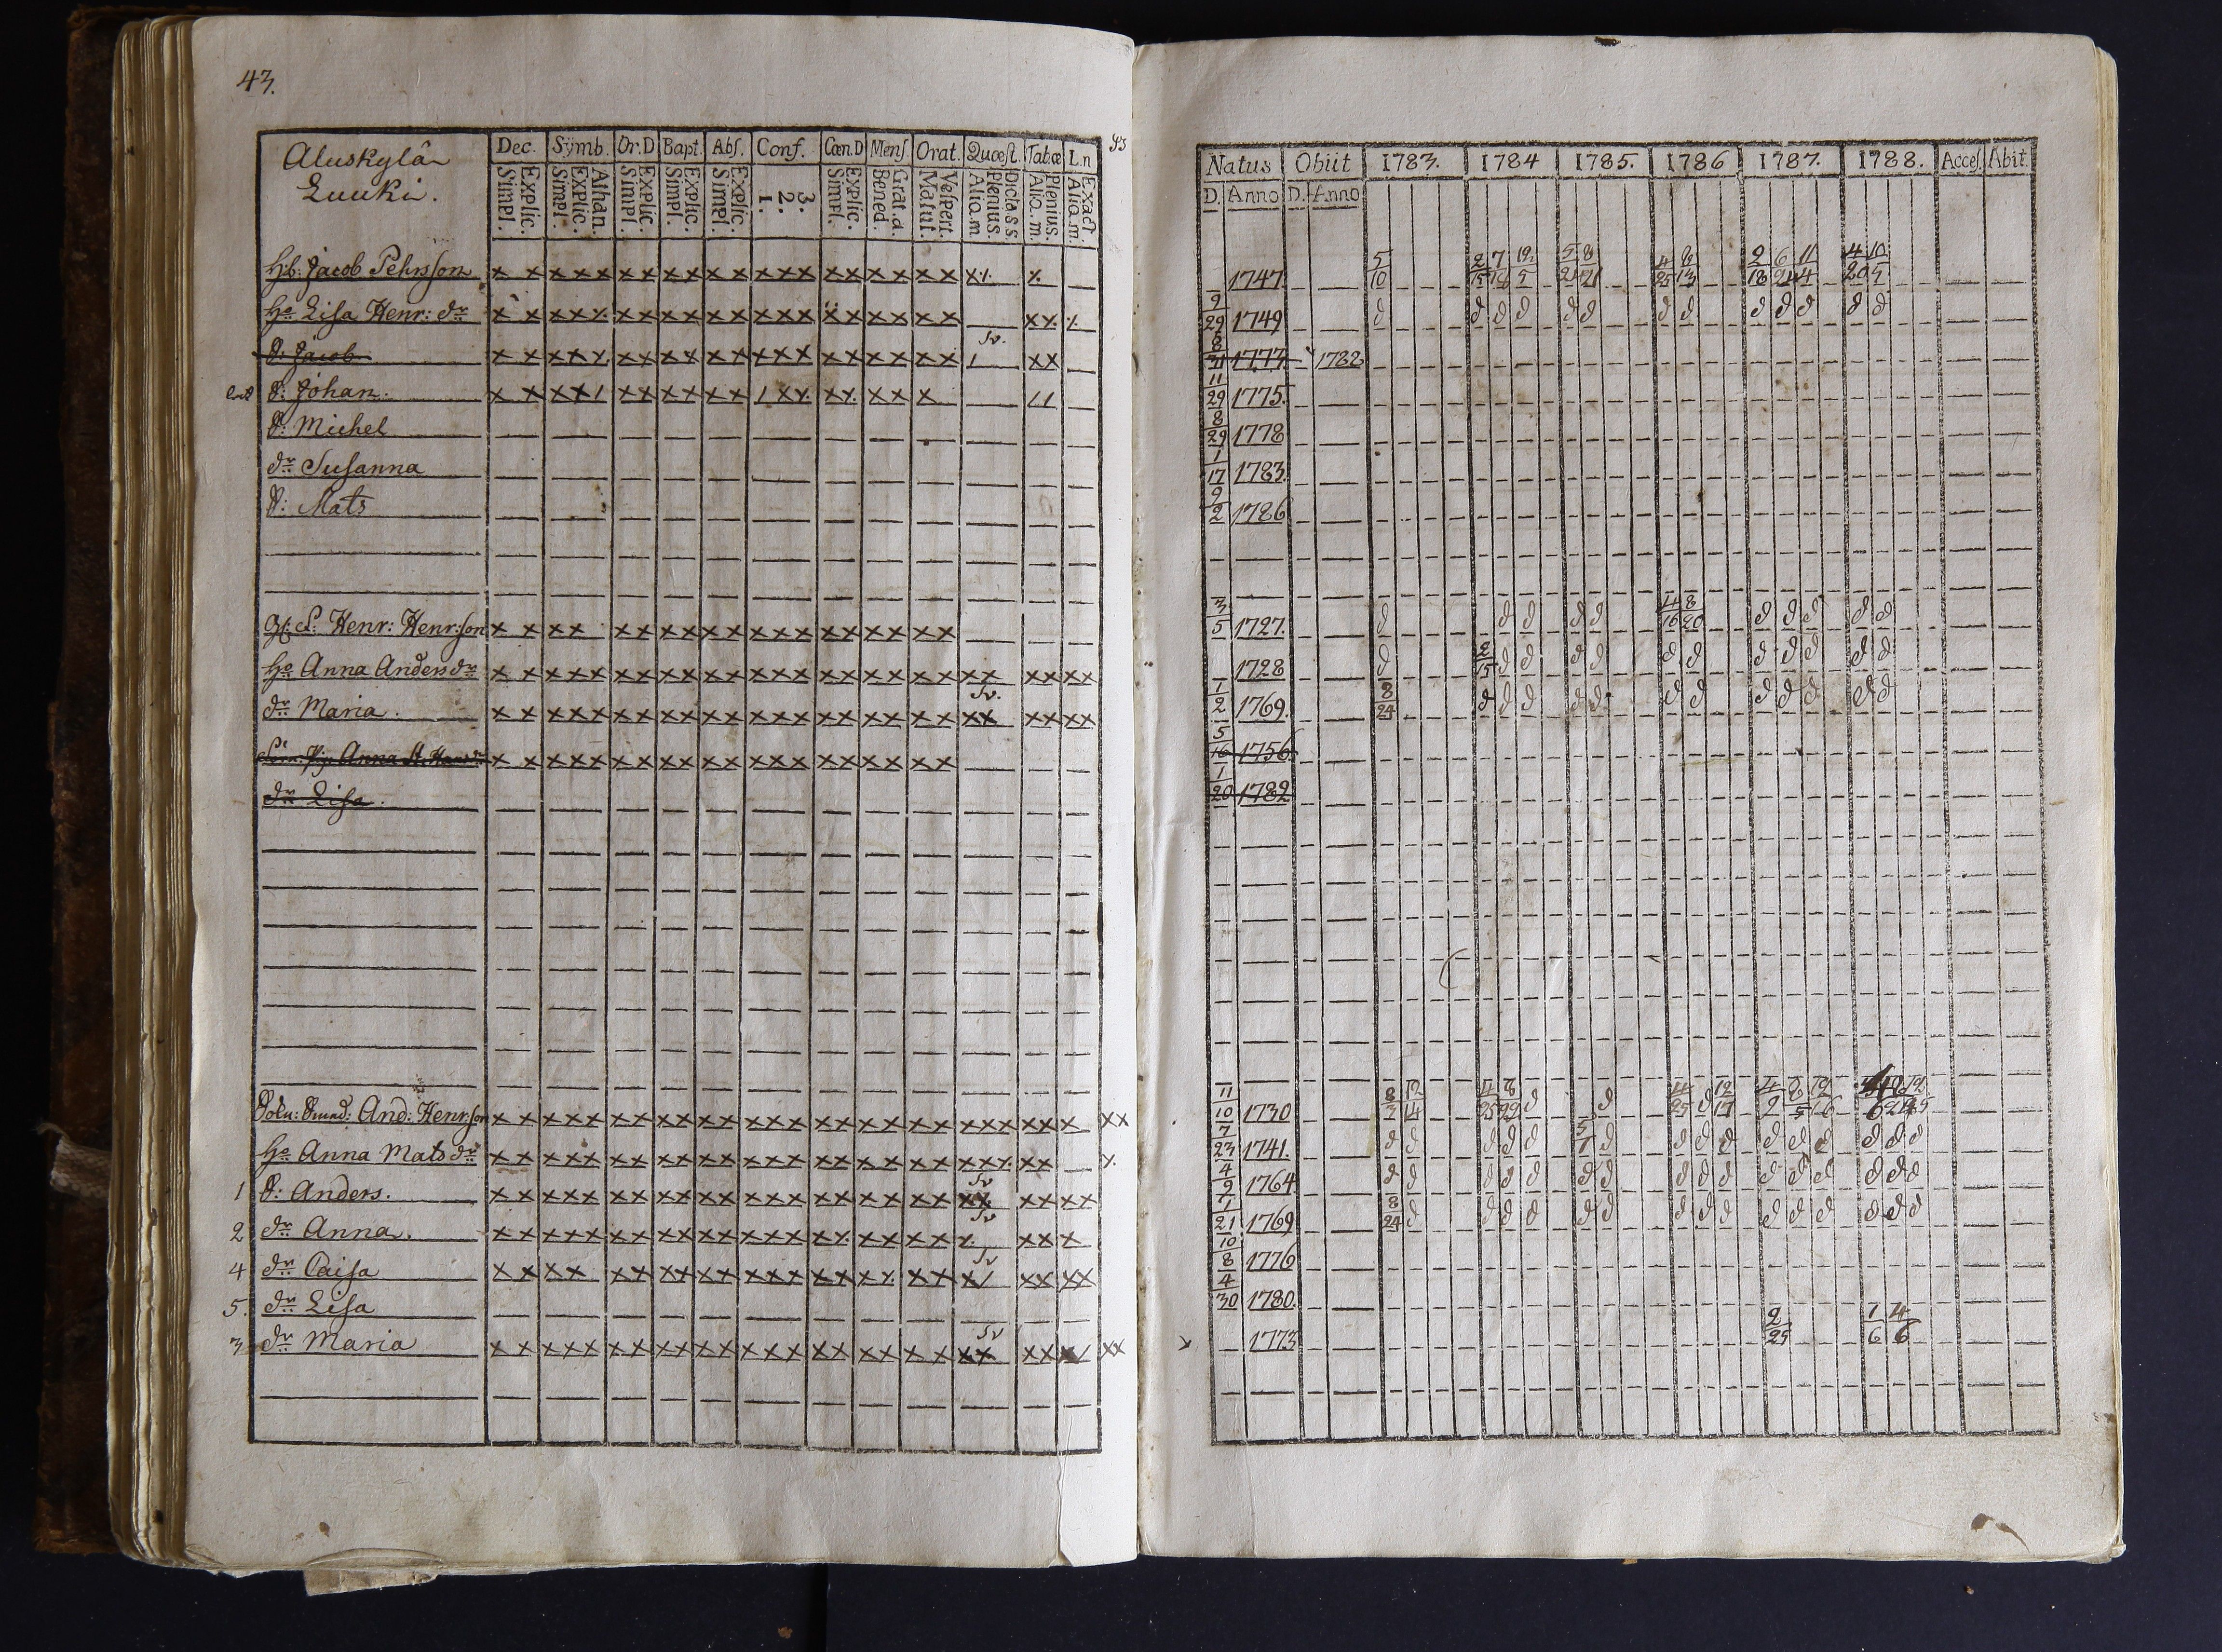 43.
93
Aluskylä
Luuki.
Dec. Symb. Or.D Bapt. Abſ. Conf. Cœn.D Menſ Orat. Quœſt. Tabæ L.n
Simpl. Explic. Simpl. Explic. Athan. Simpl. Explic. Simpl. Explic. Simpl. Explic. 1. 2. 3. Simpl. Explic. Bened. Grat.a. Matut. Veſpert. Aliq.m Plenius. Dicta S.S. Aliq.m. Plenius. Aliq.m. Exact.
Hb: Jacob Pehrsſon x x x x x x x x x x x x x x x x x x x x
He Lisa Henr: dr x x x x x x x x x x x x x x x x x x
S: Jacob x x x x x x x x x x x x x x x x x x Sv. x x
S: Johan. x x x x x x x x x x x x x
S: Michel
dr Susanna
S: Mats
Henr: Henr:ſon x x x x x x x x x x x x x x x x x x x
He Anna Anders dr x x x x x x x x x x x x x x x x x x x x x x x x x x
dr Maria. x x x x x x x x x x x x x x x x x x x x Sv. x x x x x x
Anna x x x x x x x x x x x x x x x x x x x x
dr Lisa.
And: Henr:ſon x x x x x x x x x x x x x x x x x x x x x x x x x x x x
He Anna Mats dr x x x x x x x x x x x x x x x x x x x x x x x x
1 S: Anders. x x x x x x x x x x x x x x x x x x x x Sv x x x x x x
2 dr Anna. x x x x x x x x x x x x x x x x x x x Sv x x x
4 dr Caisa x x x x x x x x x x x x x x x x x x Sv x x x x x
5. dr Lisa
3 dr Maria x x x x x x x x x x x x x x x x x x x x Sv x x x x x x x
Natus Obiit 1783. 1784 1785. 1786 1787. 1788. Acceſ. Abit.
D. Anno D. Anno
1747 5/10 2/15 7/18 12/5 5/24 8/21 4/25 2/18 6/24 11/4 4/20 10/5
9/29 1749 d d d d d d d d d d d d
8/31 1777 1788
11/29 1775.
8/29 1778
1/17 1783.
9/2 1786
3/5 1727. d d d d d 4/16 8/20 d d d d d
1728 d 2/15 d d d d d d d d d d d
1/2 1769. 8/24 d d d d d d d d d d d d
5/16 1756.
1/20 1782
11/10 1730 8/3 12/14 4/25 8/22 d d 4/25 d 12/17
7/23 1741. d d d d d 5/1 d d d d d d d d d d
4/9 1764 d d d d d d d d d d d d d d d d
1/21 1769 8/24 d d d d d d d d d d d d d d d
10/8 1776
4/30 1780.
1773 2/25 1/6 4/6